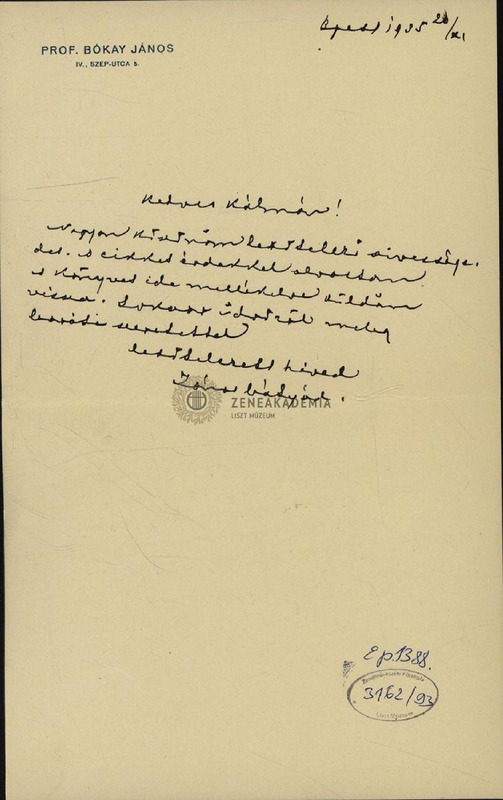 PROF. BÓKAY JÁNOS
IV., SZÉP-UTCA 5.
Bpest 1935 20/XI
Kedves Kálmán!
Nagyon köszönöm lekötelező szívessége-
det. A cikket érdekkel olvastam
s könyved ide mellékelve küldöm
vissza. Sokszor üdvözöl meleg
baráti szeretettel
lekötelezett híved
János bátyád.
ZENEAKADÉMIA
LISZT MÚZEUM
Ep. 1388.
Zeneművészeti Főiskola
3162/93
Liszt Múzeum